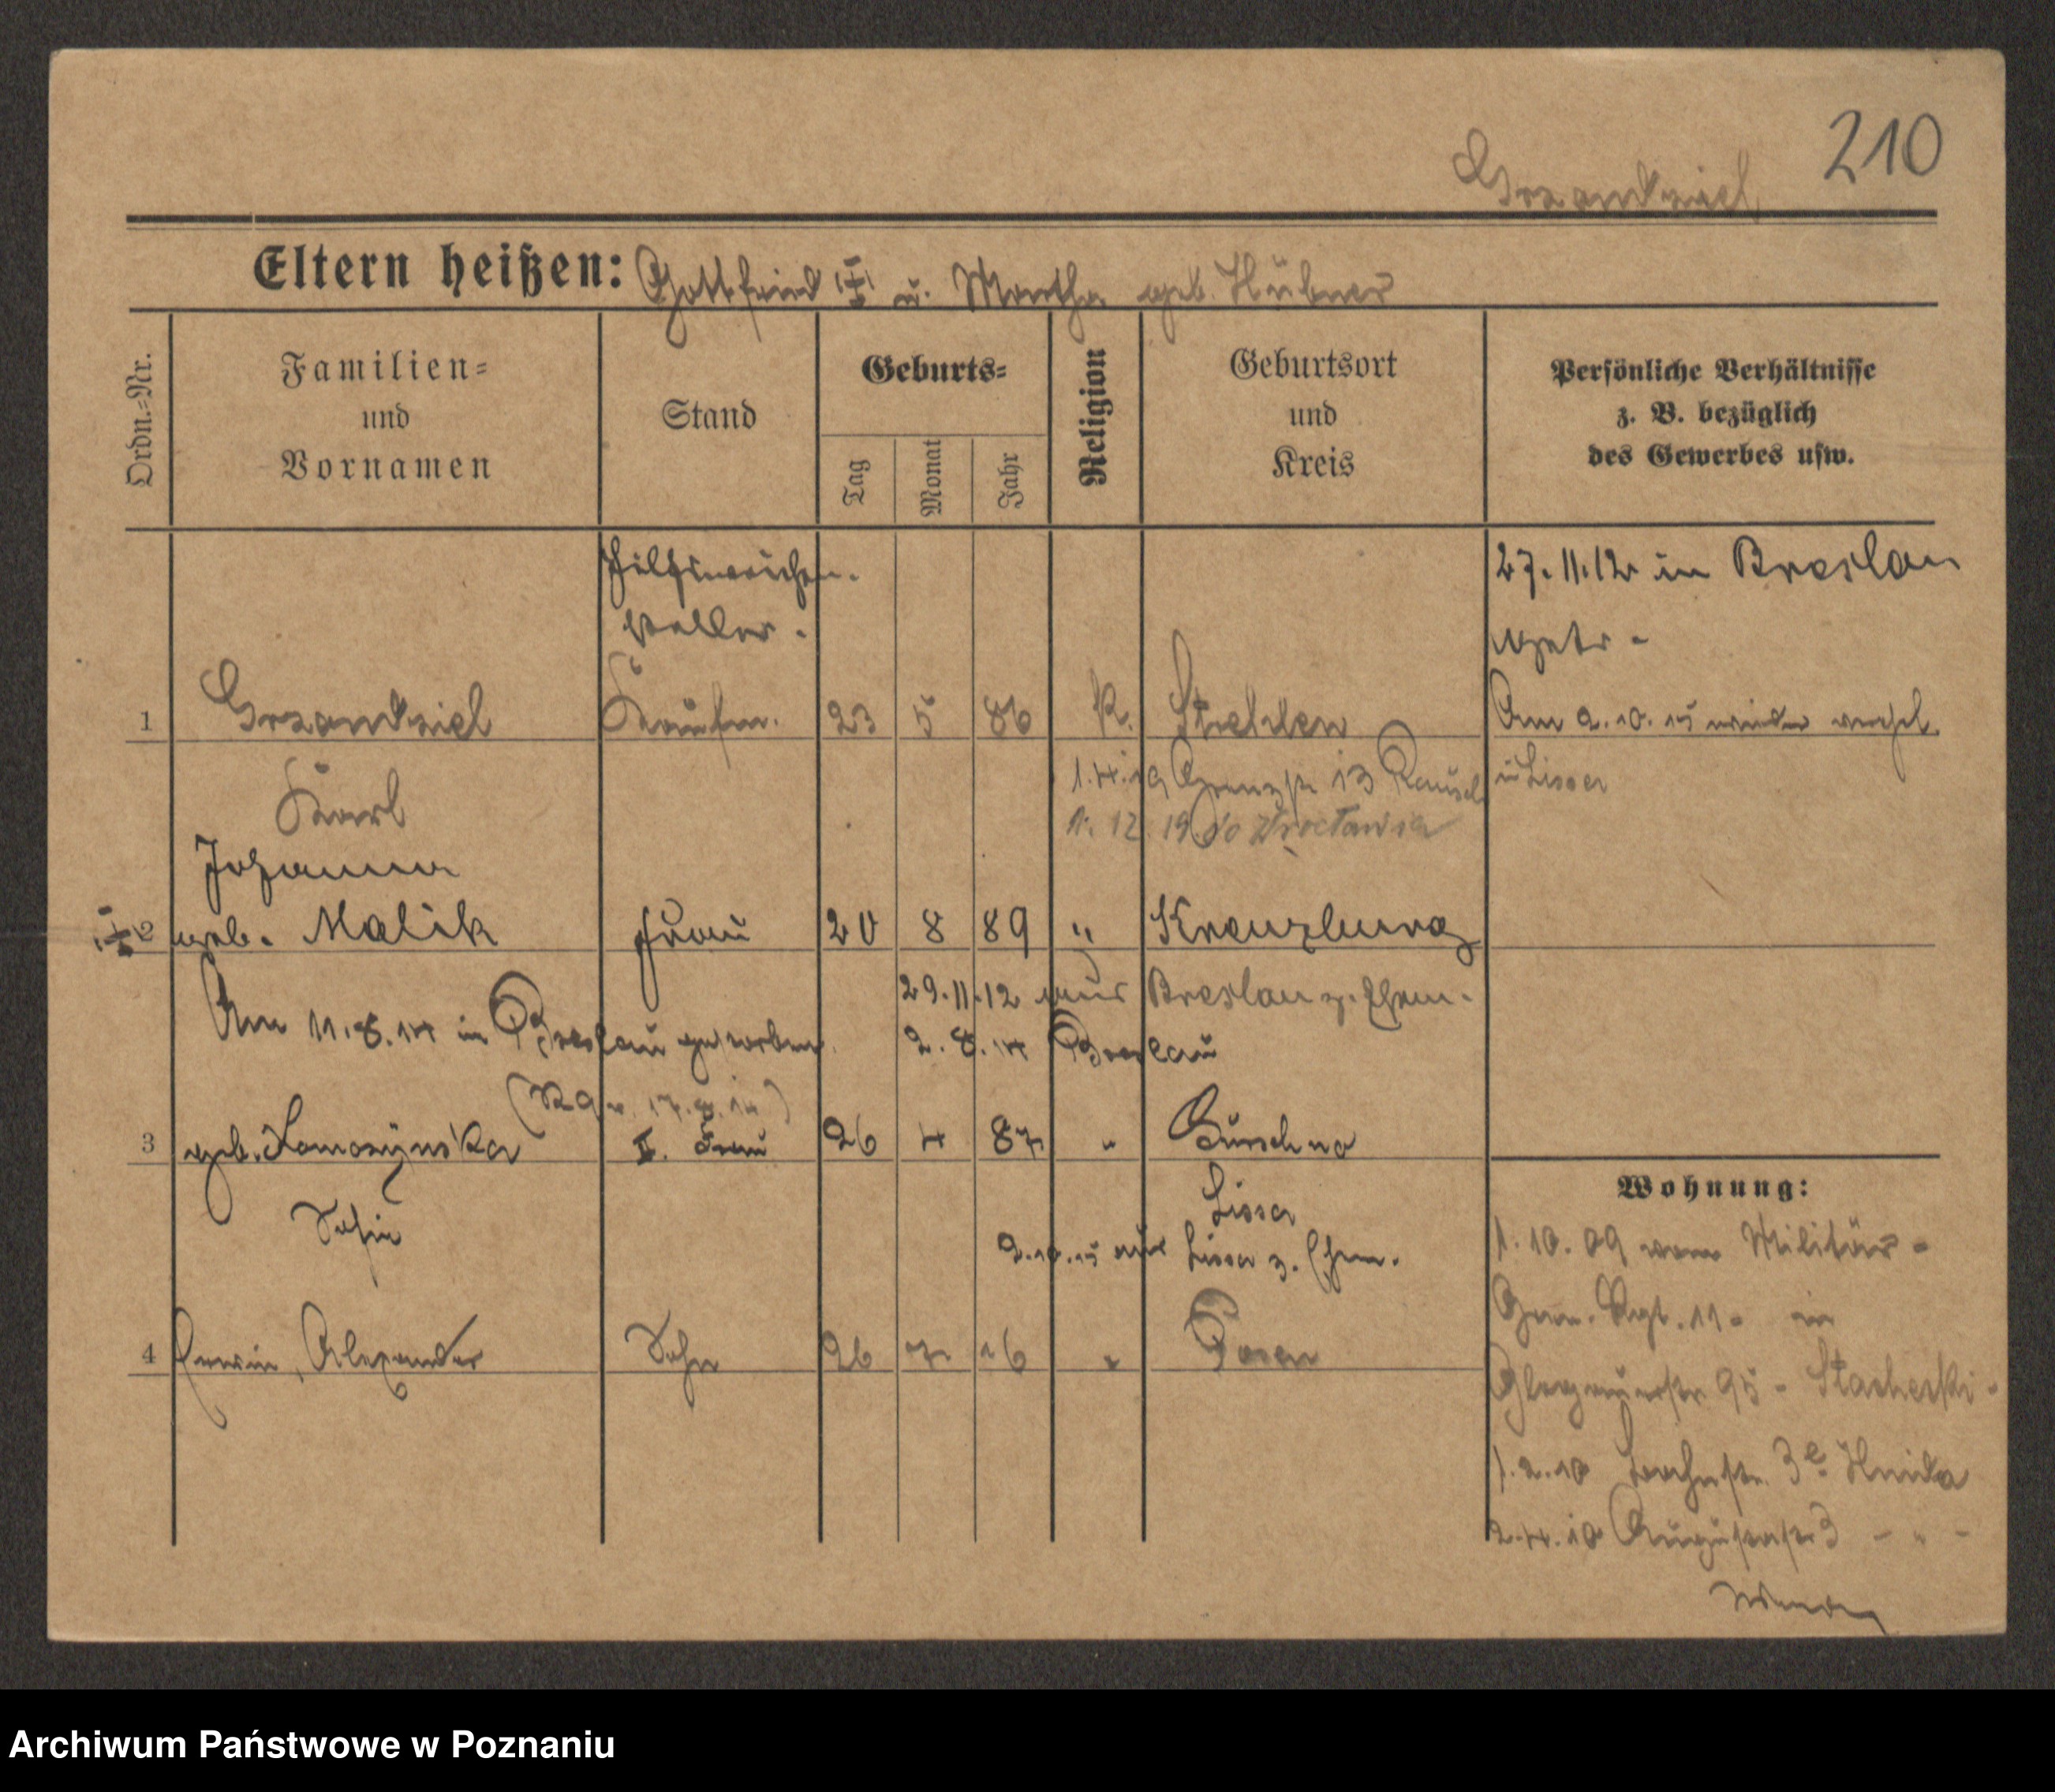 210
Grzondziel
Eltern heißen: Gottfried u. Martha geb. Hübner
Ordn.=Nr.
Familien=
und
Vornamen
Stand
Geburts=
Tag
Monat
Jahr
Religion
Geburtsort
und
Kreis
Persönliche Verhältnisse
z. B. bezüglich
des Gewerbes usw.
Hilfsweichen-
steller.
27.11.12 in Breslau
getr.
1 Grzondziel Kaufm. 23 5 86 K. Strehlen Am 2.10.15 wieder verehel.
in Lissa
Karl
1.4.19 Grenzstr 13
1.12.19 do Wrocławia
Johanna
2 geb. Malik Frau 20 8 89 " Kreuzburg
29.11.12 aus Breslau z. Ehem.
Am 11.8.14 in Breslau gestorben.
2.8.14 Breslau
3 geb. II. Frau 26 4 87 "
Lissa
Sofie
2.10.15 aus Lissa z. Ehem.
4 Erwin, Alexander Sohn 26 7 16 " Posen
Wohnung:
1.10.09 vom Militär-
Gren. Rgt. 11 - in
Glogauerstr 95 - Stacherski -
1.2.10 3e Hnida
2.4.10 Augustastr 3 - " -
Archiwum Państwowe w Poznaniu